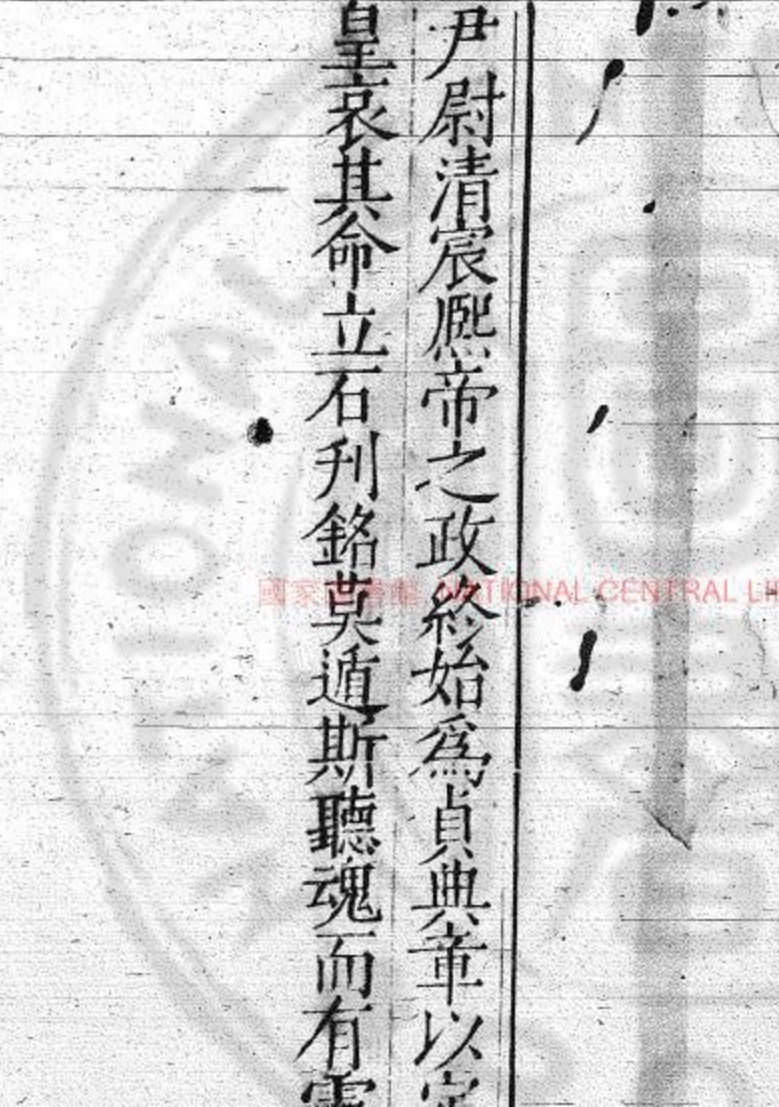 尹尉清宸熈帝之政終始爲貞典章以
皇哀其命立石刋銘莫遁斯聽魂而有
國家圖書館 NATIONAL CENTRAL LI